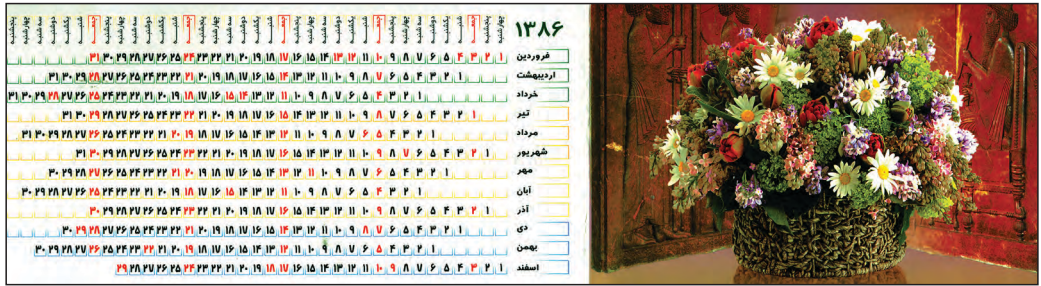 ۱۳۸۶ چهارشنبه پنجشنبه جمعه شنبه یکشنبه دوشنبه سه شنبه چهارشنبه پنجشنبه جمعه شنبه یکشنبه دوشنبه سه شنبه چهارشنبه پنجشنبه جمعه شنبه یکشنبه دوشنبه سه شنبه چهارشنبه پنجشنبه جمعه شنبه یکشنبه دوشنبه سه شنبه چهارشنبه پنجشنبه جمعه شنبه یکشنبه دوشنبه سه شنبه چهارشنبه پنجشنبه
فروردین ۱ ۲ ۳ ۴ ۵ ۶ ۷ ۸ ۹ ۱۰ ۱۱ ۱۲ ۱۳ ۱۴ ۱۵ ۱۶ ۱۷ ۱۸ ۱۹ ۲۰ ۲۱ ۲۲ ۲۳ ۲۴ ۲۵ ۲۶ ۲۷ ۲۸ ۲۹ ۳۰ ۳۱
اردیبهشت ۱ ۲ ۳ ۴ ۵ ۶ ۷ ۸ ۹ ۱۰ ۱۱ ۱۲ ۱۳ ۱۴ ۱۵ ۱۶ ۱۷ ۱۸ ۱۹ ۲۰ ۲۱ ۲۲ ۲۳ ۲۴ ۲۵ ۲۶ ۲۷ ۲۸ ۲۹ ۳۰ ۳۱
خرداد ۱ ۲ ۳ ۴ ۵ ۶ ۷ ۸ ۹ ۱۰ ۱۱ ۱۲ ۱۳ ۱۴ ۱۵ ۱۶ ۱۷ ۱۸ ۱۹ ۲۰ ۲۱ ۲۲ ۲۳ ۲۴ ۲۵ ۲۶ ۲۷ ۲۸ ۲۹ ۳۰ ۳۱
تیر ۱ ۲ ۳ ۴ ۵ ۶ ۷ ۸ ۹ ۱۰ ۱۱ ۱۲ ۱۳ ۱۴ ۱۵ ۱۶ ۱۷ ۱۸ ۱۹ ۲۰ ۲۱ ۲۲ ۲۳ ۲۴ ۲۵ ۲۶ ۲۷ ۲۸ ۲۹ ۳۰ ۳۱
مرداد ۱ ۲ ۳ ۴ ۵ ۶ ۷ ۸ ۹ ۱۰ ۱۱ ۱۲ ۱۳ ۱۴ ۱۵ ۱۶ ۱۷ ۱۸ ۱۹ ۲۰ ۲۱ ۲۲ ۲۳ ۲۴ ۲۵ ۲۶ ۲۷ ۲۸ ۲۹ ۳۰ ۳۱
شهریور ۱ ۲ ۳ ۴ ۵ ۶ ۷ ۸ ۹ ۱۰ ۱۱ ۱۲ ۱۳ ۱۴ ۱۵ ۱۶ ۱۷ ۱۸ ۱۹ ۲۰ ۲۱ ۲۲ ۲۳ ۲۴ ۲۵ ۲۶ ۲۷ ۲۸ ۲۹ ۳۰ ۳۱
مهر ۱ ۲ ۳ ۴ ۵ ۶ ۷ ۸ ۹ ۱۰ ۱۱ ۱۲ ۱۳ ۱۴ ۱۵ ۱۶ ۱۷ ۱۸ ۱۹ ۲۰ ۲۱ ۲۲ ۲۳ ۲۴ ۲۵ ۲۶ ۲۷ ۲۸ ۲۹ ۳۰
آبان ۱ ۲ ۳ ۴ ۵ ۶ ۷ ۸ ۹ ۱۰ ۱۱ ۱۲ ۱۳ ۱۴ ۱۵ ۱۶ ۱۷ ۱۸ ۱۹ ۲۰ ۲۱ ۲۲ ۲۳ ۲۴ ۲۵ ۲۶ ۲۷ ۲۸ ۲۹ ۳۰
آذر ۱ ۲ ۳ ۴ ۵ ۶ ۷ ۸ ۹ ۱۰ ۱۱ ۱۲ ۱۳ ۱۴ ۱۵ ۱۶ ۱۷ ۱۸ ۱۹ ۲۰ ۲۱ ۲۲ ۲۳ ۲۴ ۲۵ ۲۶ ۲۷ ۲۸ ۲۹ ۳۰
دی ۱ ۲ ۳ ۴ ۵ ۶ ۷ ۸ ۹ ۱۰ ۱۱ ۱۲ ۱۳ ۱۴ ۱۵ ۱۶ ۱۷ ۱۸ ۱۹ ۲۰ ۲۱ ۲۲ ۲۳ ۲۴ ۲۵ ۲۶ ۲۷ ۲۸ ۲۹ ۳۰
بهمن ۱ ۲ ۳ ۴ ۵ ۶ ۷ ۸ ۹ ۱۰ ۱۱ ۱۲ ۱۳ ۱۴ ۱۵ ۱۶ ۱۷ ۱۸ ۱۹ ۲۰ ۲۱ ۲۲ ۲۳ ۲۴ ۲۵ ۲۶ ۲۷ ۲۸ ۲۹ ۳۰
اسفند ۱ ۲ ۳ ۴ ۵ ۶ ۷ ۸ ۹ ۱۰ ۱۱ ۱۲ ۱۳ ۱۴ ۱۵ ۱۶ ۱۷ ۱۸ ۱۹ ۲۰ ۲۱ ۲۲ ۲۳ ۲۴ ۲۵ ۲۶ ۲۷ ۲۸ ۲۹